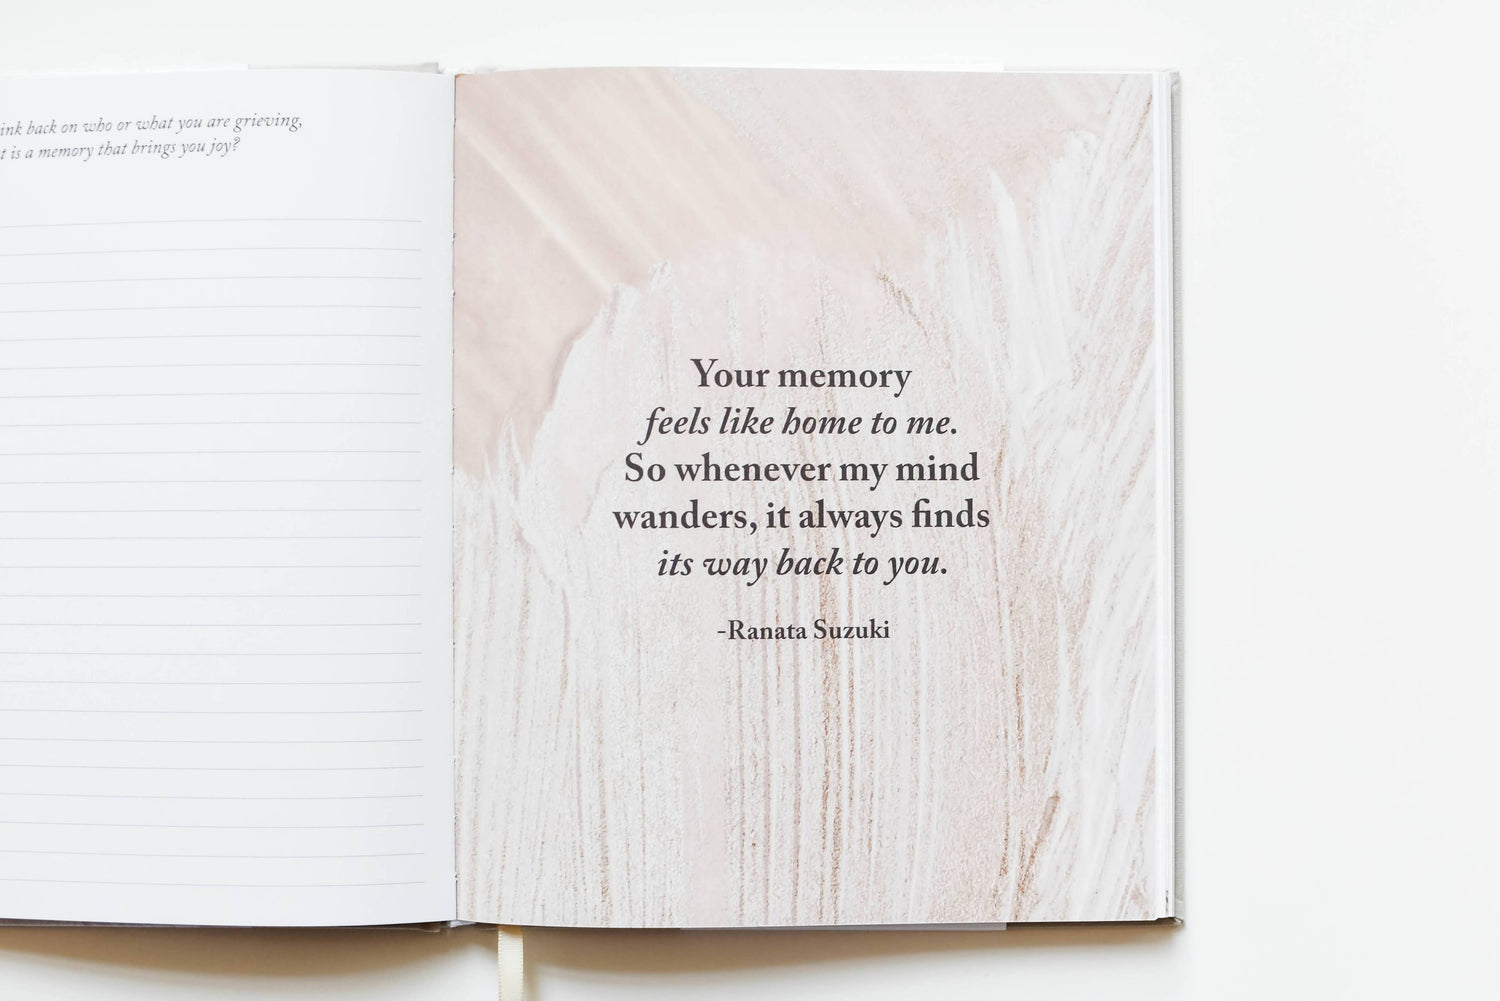 ink back on who or what you are grieving,
t is a memory that brings you joy?
Your memory
feels like home to me.
So whenever my mind
wanders, it always finds
its way back to you.
-Ranata Suzuki